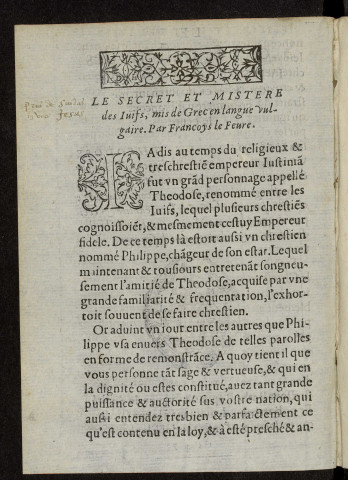 LE SECRET ET MISTERE
des Iuifs, mis de Grec en langue vul-
gaire. Par Francoys le Feure.
IAdis au temps du religieux &
treschrestiē empereur Iustiniā
fut vn grād personnage appellé
Theodose, renommé entre les
Iuifs, lequel plusieurs chrestiēs
cognoissoiēt, & mesmement cestuy Empereur
fidele. De ce temps là estoit aussi vn chrestien
nommé Philippe, chāgeur de son estat. Lequel
maintenant & tousiours entretenāt songneu-
sement l'amitié de Theodose, acquise par vne
grande familiarité & frequentation, l'exhor-
toit souuent de se faire chrestien.
Or aduint vn iour entre les autres que Phi-
lippe vsa enuers Theodose de telles parolles
en forme de remonstrāce. A quoy tient il que
vous personne tāt sage & vertueuse, & qui en
la dignité ou estes constitué, auez tant grande
puissance & auctorité sus vostre nation, qui
aussi entendez tresbien & parfaictement ce
qu'est contenu en la loy, & à esté presché & an-